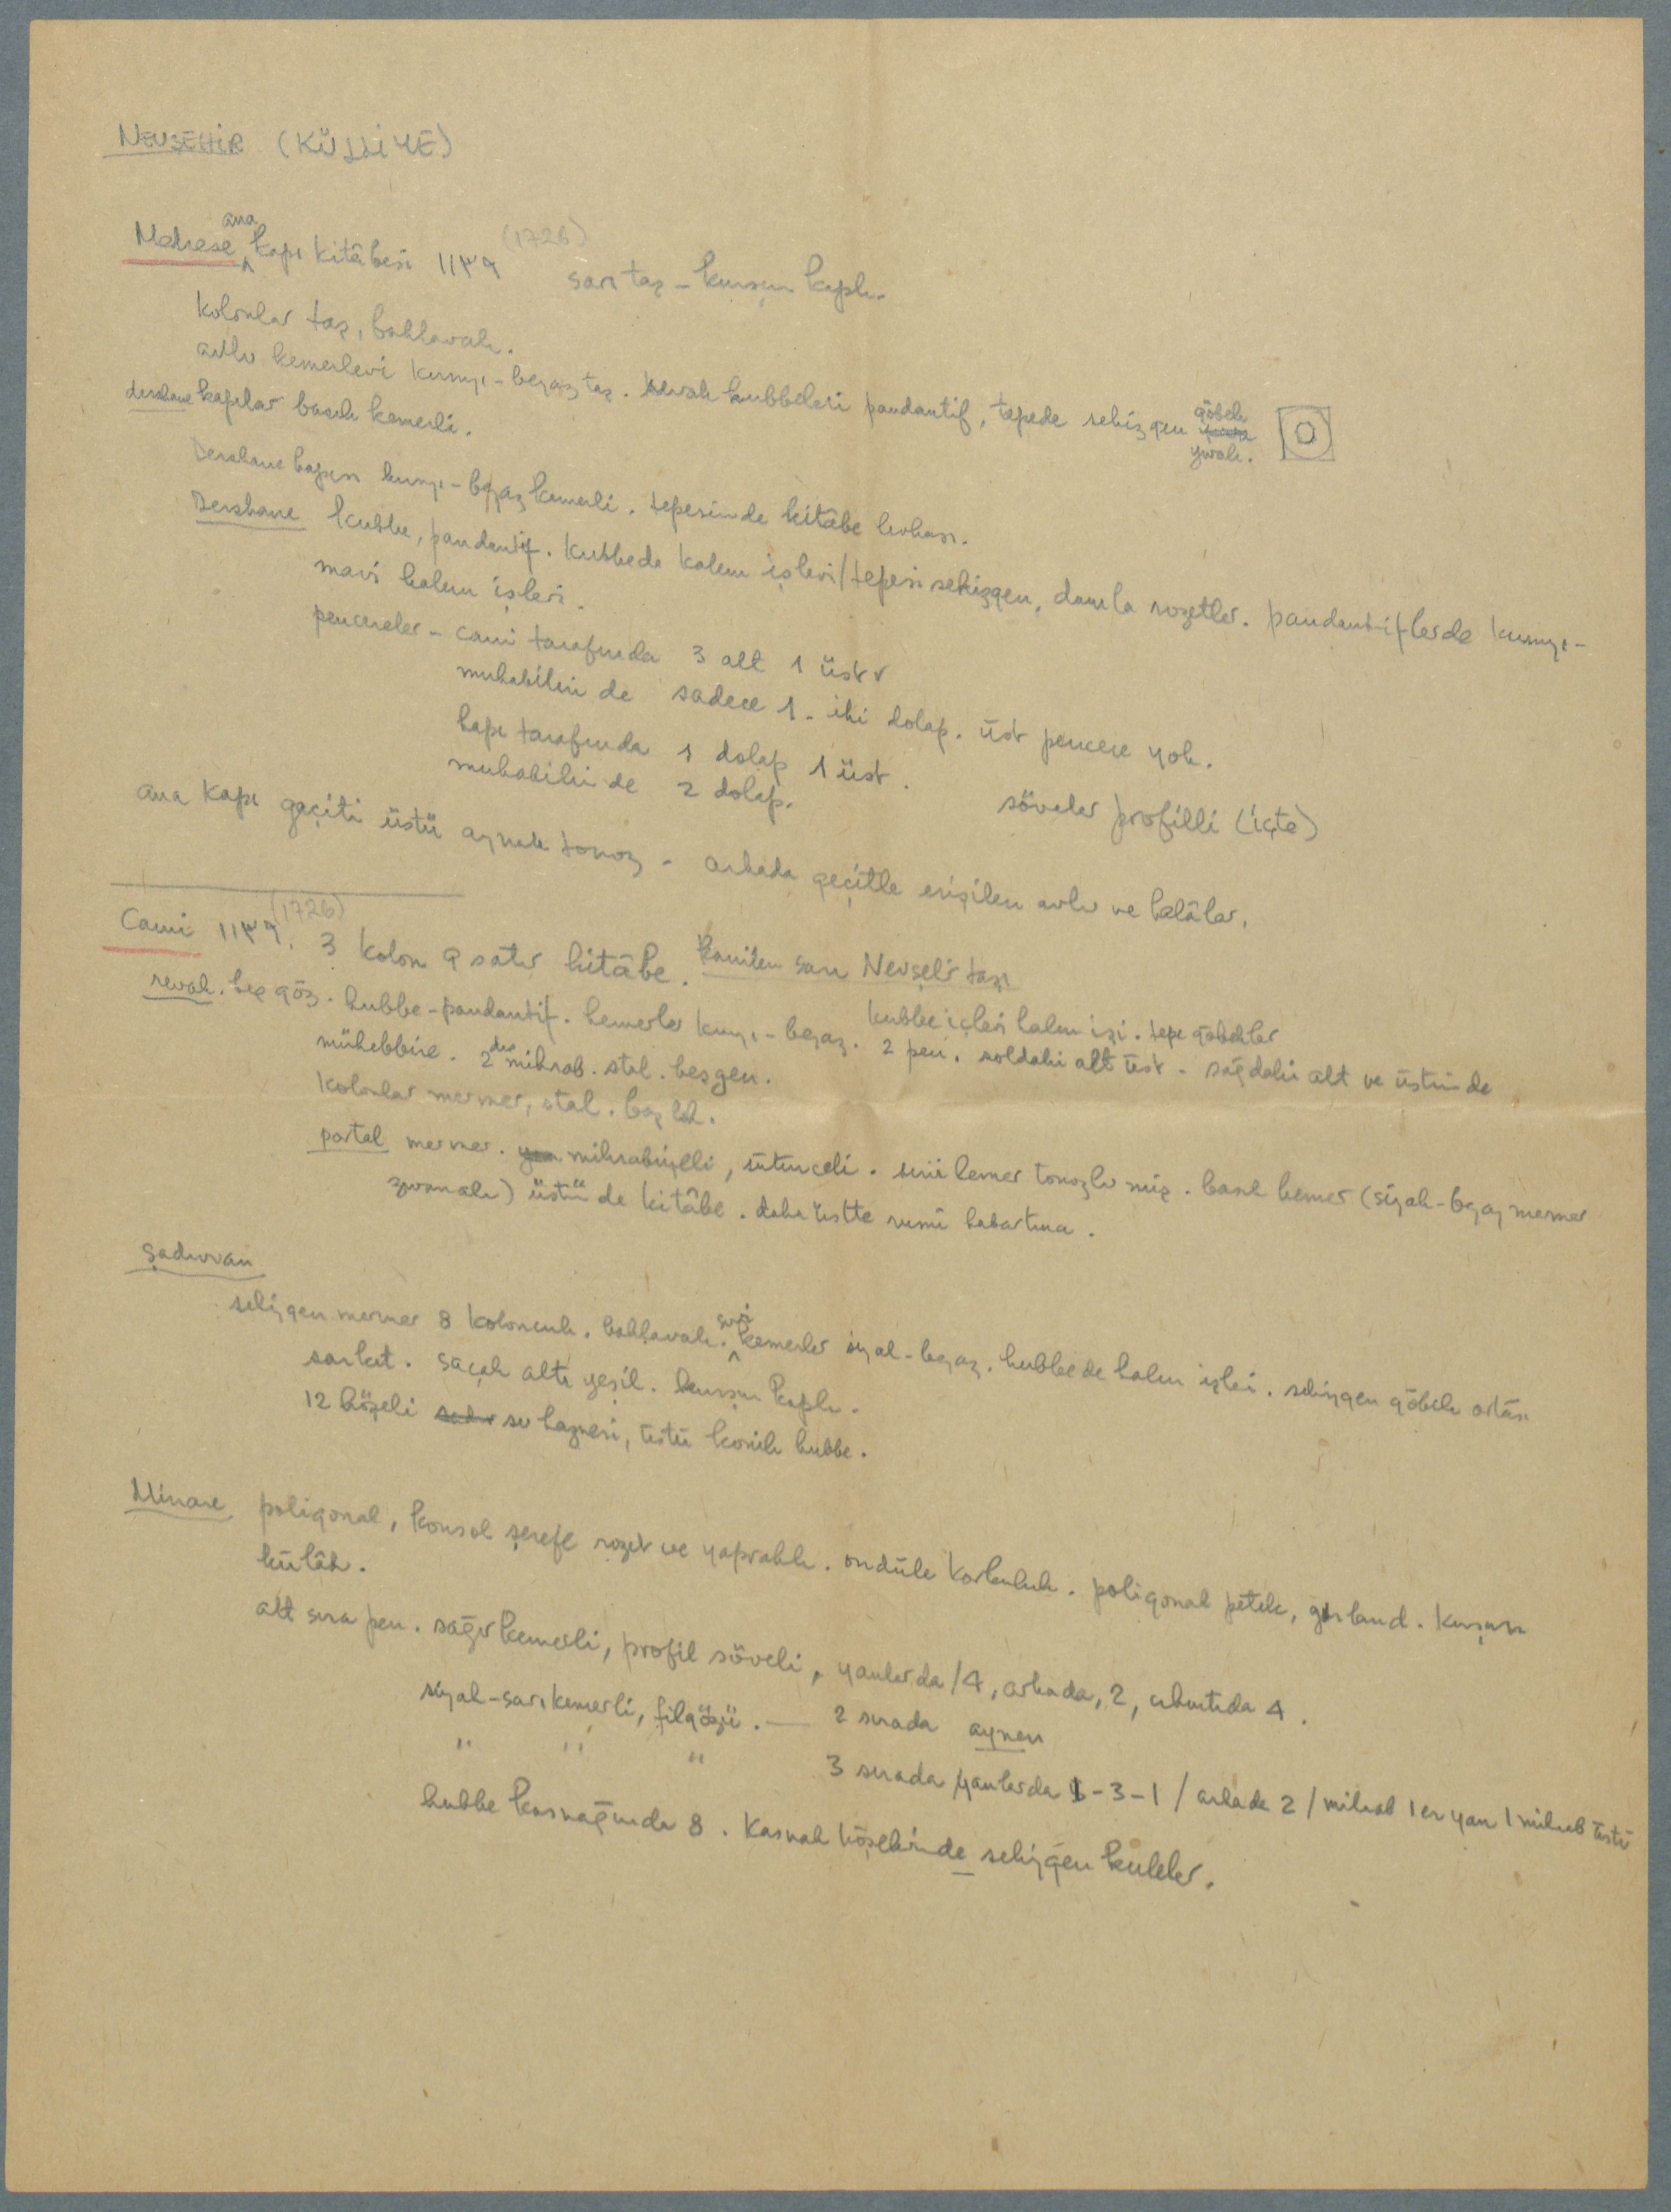 NEVŞEHİR (KÜLLİYE)
Medrese ana kapı kitâbesi ١١٣٩ (1726) sarı taş - kurşun kaplı.
Kolonlar taş, baklavalı.
avlu kemerleri kırmızı-beyaz taş. Revak kubbeleri pandantif, tepede sekizgen göbek yuvalı.
dershane kapılar basık kemerli.
Dershane kapısı kırmızı-beyaz kemerli. tepesinde kitâbe levhası.
Dershane kubbe, pandantif. Kubbede kalem işleri/tepesi sekizgen, damla rozetler. pandantiflerde kırmızı-
mavi kalem işleri.
pencereler - cami tarafında 3 alt 1 üst
mukabilin de sadece 1 - iki dolap. üst pencere yok.
kapı tarafında 1 dolap 1 üst.
mukabilin de 2 dolap.
söveler profilli (içte)
ana kapı geçiti üstü aynalı tonoz - arkada geçitle erişilen avlu ve helâlar.
Cami ١١٣٩. (1726) 3 kolon 9 satır kitâbe. kamilen sarı Nevşehir taşı
revak. beş göz. kubbe-pandantif. kemerler kırmızı-beyaz. kubbe içleri kalem işi. tepe göbekler
2 pen. soldaki alt üst - sağdaki alt ve üstünde
mükebbire. 2 dış mihrab. stal. beşgen.
Kolonlar mermer, stal. başlık.
portal mermer. mihrabiyeli, sütunceli. sivri kemer tonozlu niş. basık kemer (siyah-beyaz mermer
zıvanalı) üstü de kitâbe. daha üstte rumî kabartma.
şadırvan
sekizgen mermer 8 kolonlu. baklavalı. sivri kemerler siyah-beyaz. kubbede kalem işleri. sekizgen göbek ortası
sarkıt. saçak altı yeşil. kurşun kaplı.
12 köşeli su haznesi, üstü konik kubbe.
Minare poligonal, konsol şerefe rozet ve yapraklı. ondüle korkuluk. poligonal petek, girland. kurşun
külâh.
alt sıra pen. sağır kemerli, profil söveli, yanlarda 4, arkada, 2, çıkıntıda 4.
siyah-sarı kemerli, filgözü. — 2 sırada aynen
" " " 3 sırada yanlarda 1-3-1 / arkada 2 / mihrab 1er yan 1 mihrab üstü
kubbe kasnağında 8. Kasnak köşelerinde sekizgen kuleler.